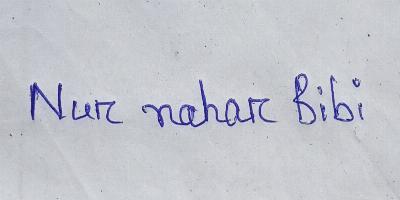 Nur nahar Bibi